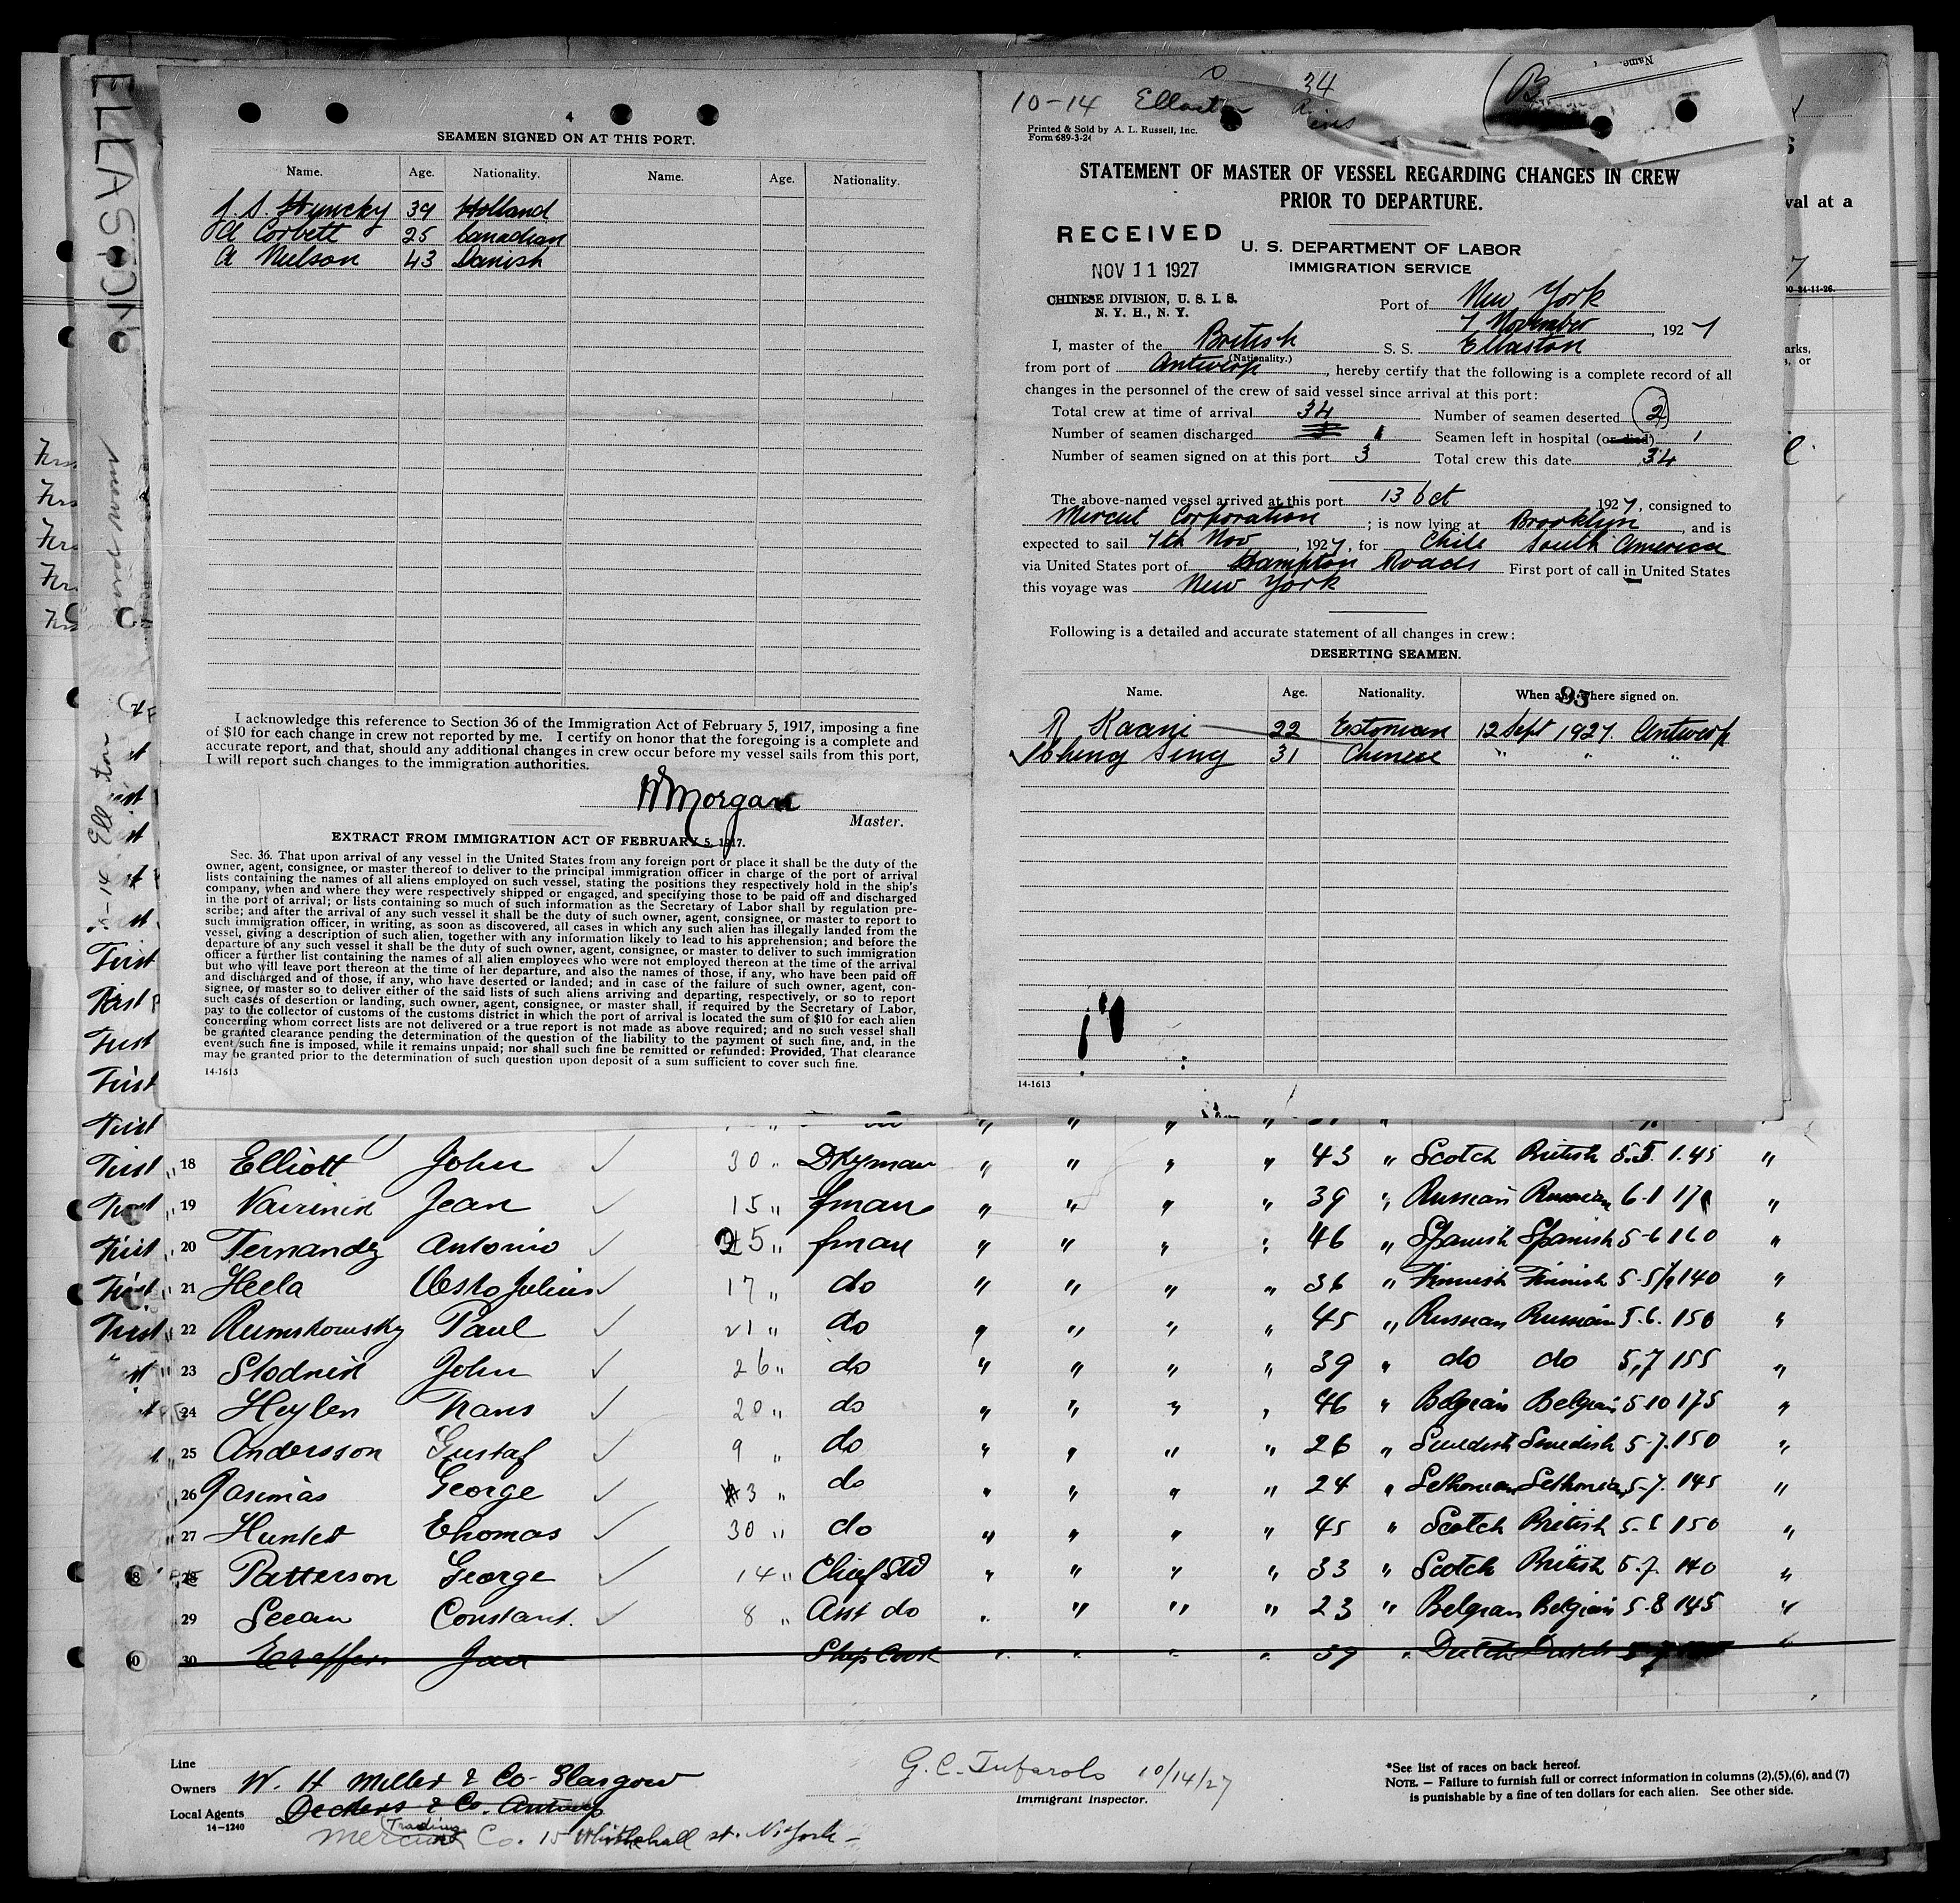 ELLASTON
4
SEAMEN SIGNED ON AT THIS PORT.
Name. Age. Nationality. Name. Age. Nationality.
39 Holland
Corbett 25 Canadian
43 Danish
I acknowledge this reference to Section 36 of the Immigration Act of February 5, 1917, imposing a fine
of $10 for each change in crew not reported by me. I certify on honor that the foregoing is a complete and
accurate report, and that, should any additional changes in crew occur before my vessel sails from this port,
I will report such changes to the immigration authorities.
Morgan
Master.
EXTRACT FROM IMMIGRATION ACT OF FEBRUARY 5, 1917.
Sec. 36. That upon arrival of any vessel in the United States from any foreign port or place it shall be the duty of the
owner, agent, consignee, or master thereof to deliver to the principal immigration officer in charge of the port of arrival
lists containing the names of all aliens employed on such vessel, stating the positions they respectively hold in the ship's
company, when and where they were respectively shipped or engaged, and specifying those to be paid off and discharged
in the port of arrival; or lists containing so much of such information as the Secretary of Labor shall by regulation pre-
scribe; and after the arrival of any such vessel it shall be the duty of such owner, agent, consignee, or master to report to
such immigration officer, in writing, as soon as discovered, all cases in which any such alien has illegally landed from the
vessel, giving a description of such alien, together with any information likely to lead to his apprehension; and before the
departure of any such vessel it shall be the duty of such owner, agent, consignee, or master to deliver to such immigration
officer a further list containing the names of all alien employees who were not employed thereon at the time of the arrival
but who will leave port thereon at the time of her departure, and also the names of those, if any, who have been paid off
and discharged and of those, if any, who have deserted or landed; and in case of the failure of such owner, agent, con-
signee, or master so to deliver either of the said lists of such aliens arriving and departing, respectively, or so to report
such cases of desertion or landing, such owner, agent, consignee, or master shall, if required by the Secretary of Labor,
pay to the collector of customs of the customs district in which the port of arrival is located the sum of $10 for each alien
concerning whom correct lists are not delivered or a true report is not made as above required; and no such vessel shall
be granted clearance pending the determination of the question of the liability to the payment of such fine, and, in the
event such fine is imposed, while it remains unpaid; nor shall such fine be remitted or refunded: Provided, That clearance
may be granted prior to the determination of such question upon deposit of a sum sufficient to cover such fine.
14-1613
10-14 Ellaston 34
Printed & Sold by A. L. Russell, Inc.
Form 689-3-24
STATEMENT OF MASTER OF VESSEL REGARDING CHANGES IN CREW
PRIOR TO DEPARTURE.
RECEIVED
NOV 11 1927
CHINESE DIVISION, U. S. I. S.
N. Y. H., N. Y.
U. S. DEPARTMENT OF LABOR
IMMIGRATION SERVICE
Port of New York
7 November, 1927
I, master of the British S. S. Ellaston
(Nationality.)
from port of Antwerp, hereby certify that the following is a complete record of all
changes in the personnel of the crew of said vessel since arrival at this port:
Total crew at time of arrival 34 Number of seamen deserted 2
Number of seamen discharged 1 Seamen left in hospital (or died) 1
Number of seamen signed on at this port 3 Total crew this date 34
The above-named vessel arrived at this port 13 Oct 1927, consigned to
Corporation; is now lying at Brooklyn, and is
expected to sail 7th Nov, 1927, for Chile South America
via United States port of Hampton Roads First port of call in United States
this voyage was New York
Following is a detailed and accurate statement of all changes in crew:
DESERTING SEAMEN.
Name. Age. Nationality. When and where signed on.
93
R Kaani 22 Estonian 12 Sept 1927. Antwerp
Cheng Sing 31 Chinese " " "
14-1613
val at a
First 18 Elliott John 30 " Dkyman " " " " 43 " Scotch British 5.5. 145 "
19 Jean 15 " fman " " " " 39 " Russian Russian 6-1 171 "
First 20 Fernandz Antonio 25 " fman " " " " 46 " Spanish Spanish 5-6 160 "
First 21 Heela Julius 17 " do " " " " 36 " Finnish Finnish 5-5½ 140 "
First 22 Rumskowsky Paul 21 " do " " " " 45 " Russian Russian 5.6. 150 "
23 Slodnik John 26 " do " " " " 39 " do do 5,7 155 "
24 Heylen Frans 20 " do " " " " 46 " Belgian Belgian 5-10 175 "
25 Andersson Gustaf 9 " do " " " " 26 " Swedish Swedish 5-7. 150 "
26 George 3 " do " " " " 24 " 5-7. 145 "
27 Hunter Thomas 30 " do " " " " 45 " Scotch British 5-6 150 "
28 Patterson George 14 " Chief Std " " " " 33 " Scotch British 5.7. 140 "
29 Constant. 8 " Asst do " " " " 23 " Belgian Belgian 5-8 145 "
30 Jan Ships Cook " " " " 59 " Dutch Dutch
Line
Owners W. H Miller & Co Glasgow
Local Agents Deckers & Co. Antwerp
14-1240
Trading
Co. 15 Whitehall st. N. York
G. C. Tufarolo 10/14/27
Immigrant Inspector.
*See list of races on back hereof.
NOTE. — Failure to furnish full or correct information in columns (2),(5),(6), and (7)
is punishable by a fine of ten dollars for each alien. See other side.